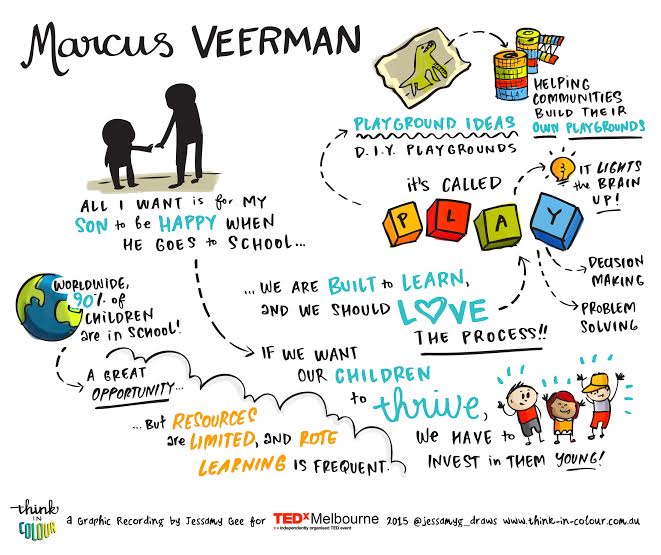 Marcus VEERMAN
ALL I WANT is for MY
SON to be HAPPY WHEN
HE GOES to SCHOOL...
WORLDWIDE,
90% of
CHILDREN
are in SCHOOL!
A GREAT
OPPORTUNITY...
...BUT RESOURCES
are LIMITED, AND ROTE
LEARNING IS FREQUENT.
IF WE WANT
OUR CHILDREN
to thrive,
WE HAVE to
INVEST in THEM YOUNG!
...WE ARE BUILT to LEARN,
AND WE SHOULD LOVE
THE PROCESS!!
it's CALLED
PLAY
IT LIGHTS
the BRAIN
UP!
DECISION
MAKING
PROBLEM
SOLVING
PLAYGROUND IDEAS
D.I.Y. PLAYGROUNDS
HELPING
COMMUNITIES
BUILD THEIR
OWN PLAYGROUNDS
think
IN
COLOUR
a Graphic Recording by Jessamy Gee for TEDxMelbourne 2015 @jessamyg_draws www.think-in-colour.com.au
x = independently organised TED event